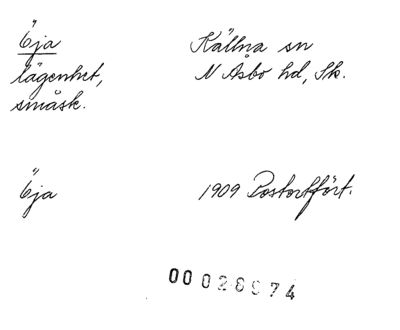 Öja Källna sn
lägenhet, N Åsbo hd, Sk.
småsk.
Öja 1909 Postortfört.